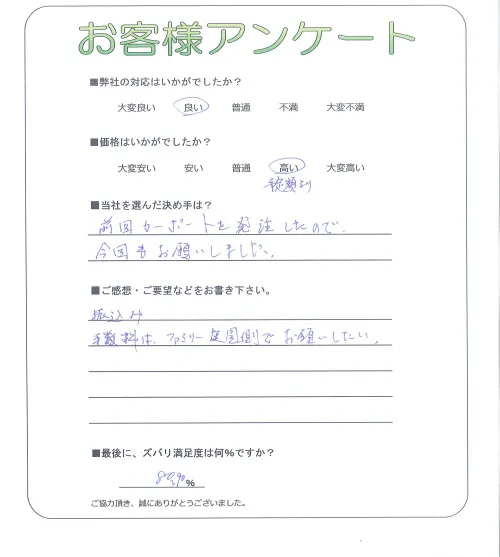 お客様アンケート
■弊社の対応はいかがでしたか？
大変良い 良い 普通 不満 大変不満
■価格はいかがでしたか？
大変安い 安い 普通 高い 大変高い
■当社を選んだ決め手は？
前回カーポートを発注したので、
今回もお願いしました。
■ご感想・ご要望などをお書き下さい。
振込み
手数料は、ファミリー庭園側でお願いしたい。
■最後に、ズバリ満足度は何%ですか？
%
ご協力頂き、誠にありがとうございました。